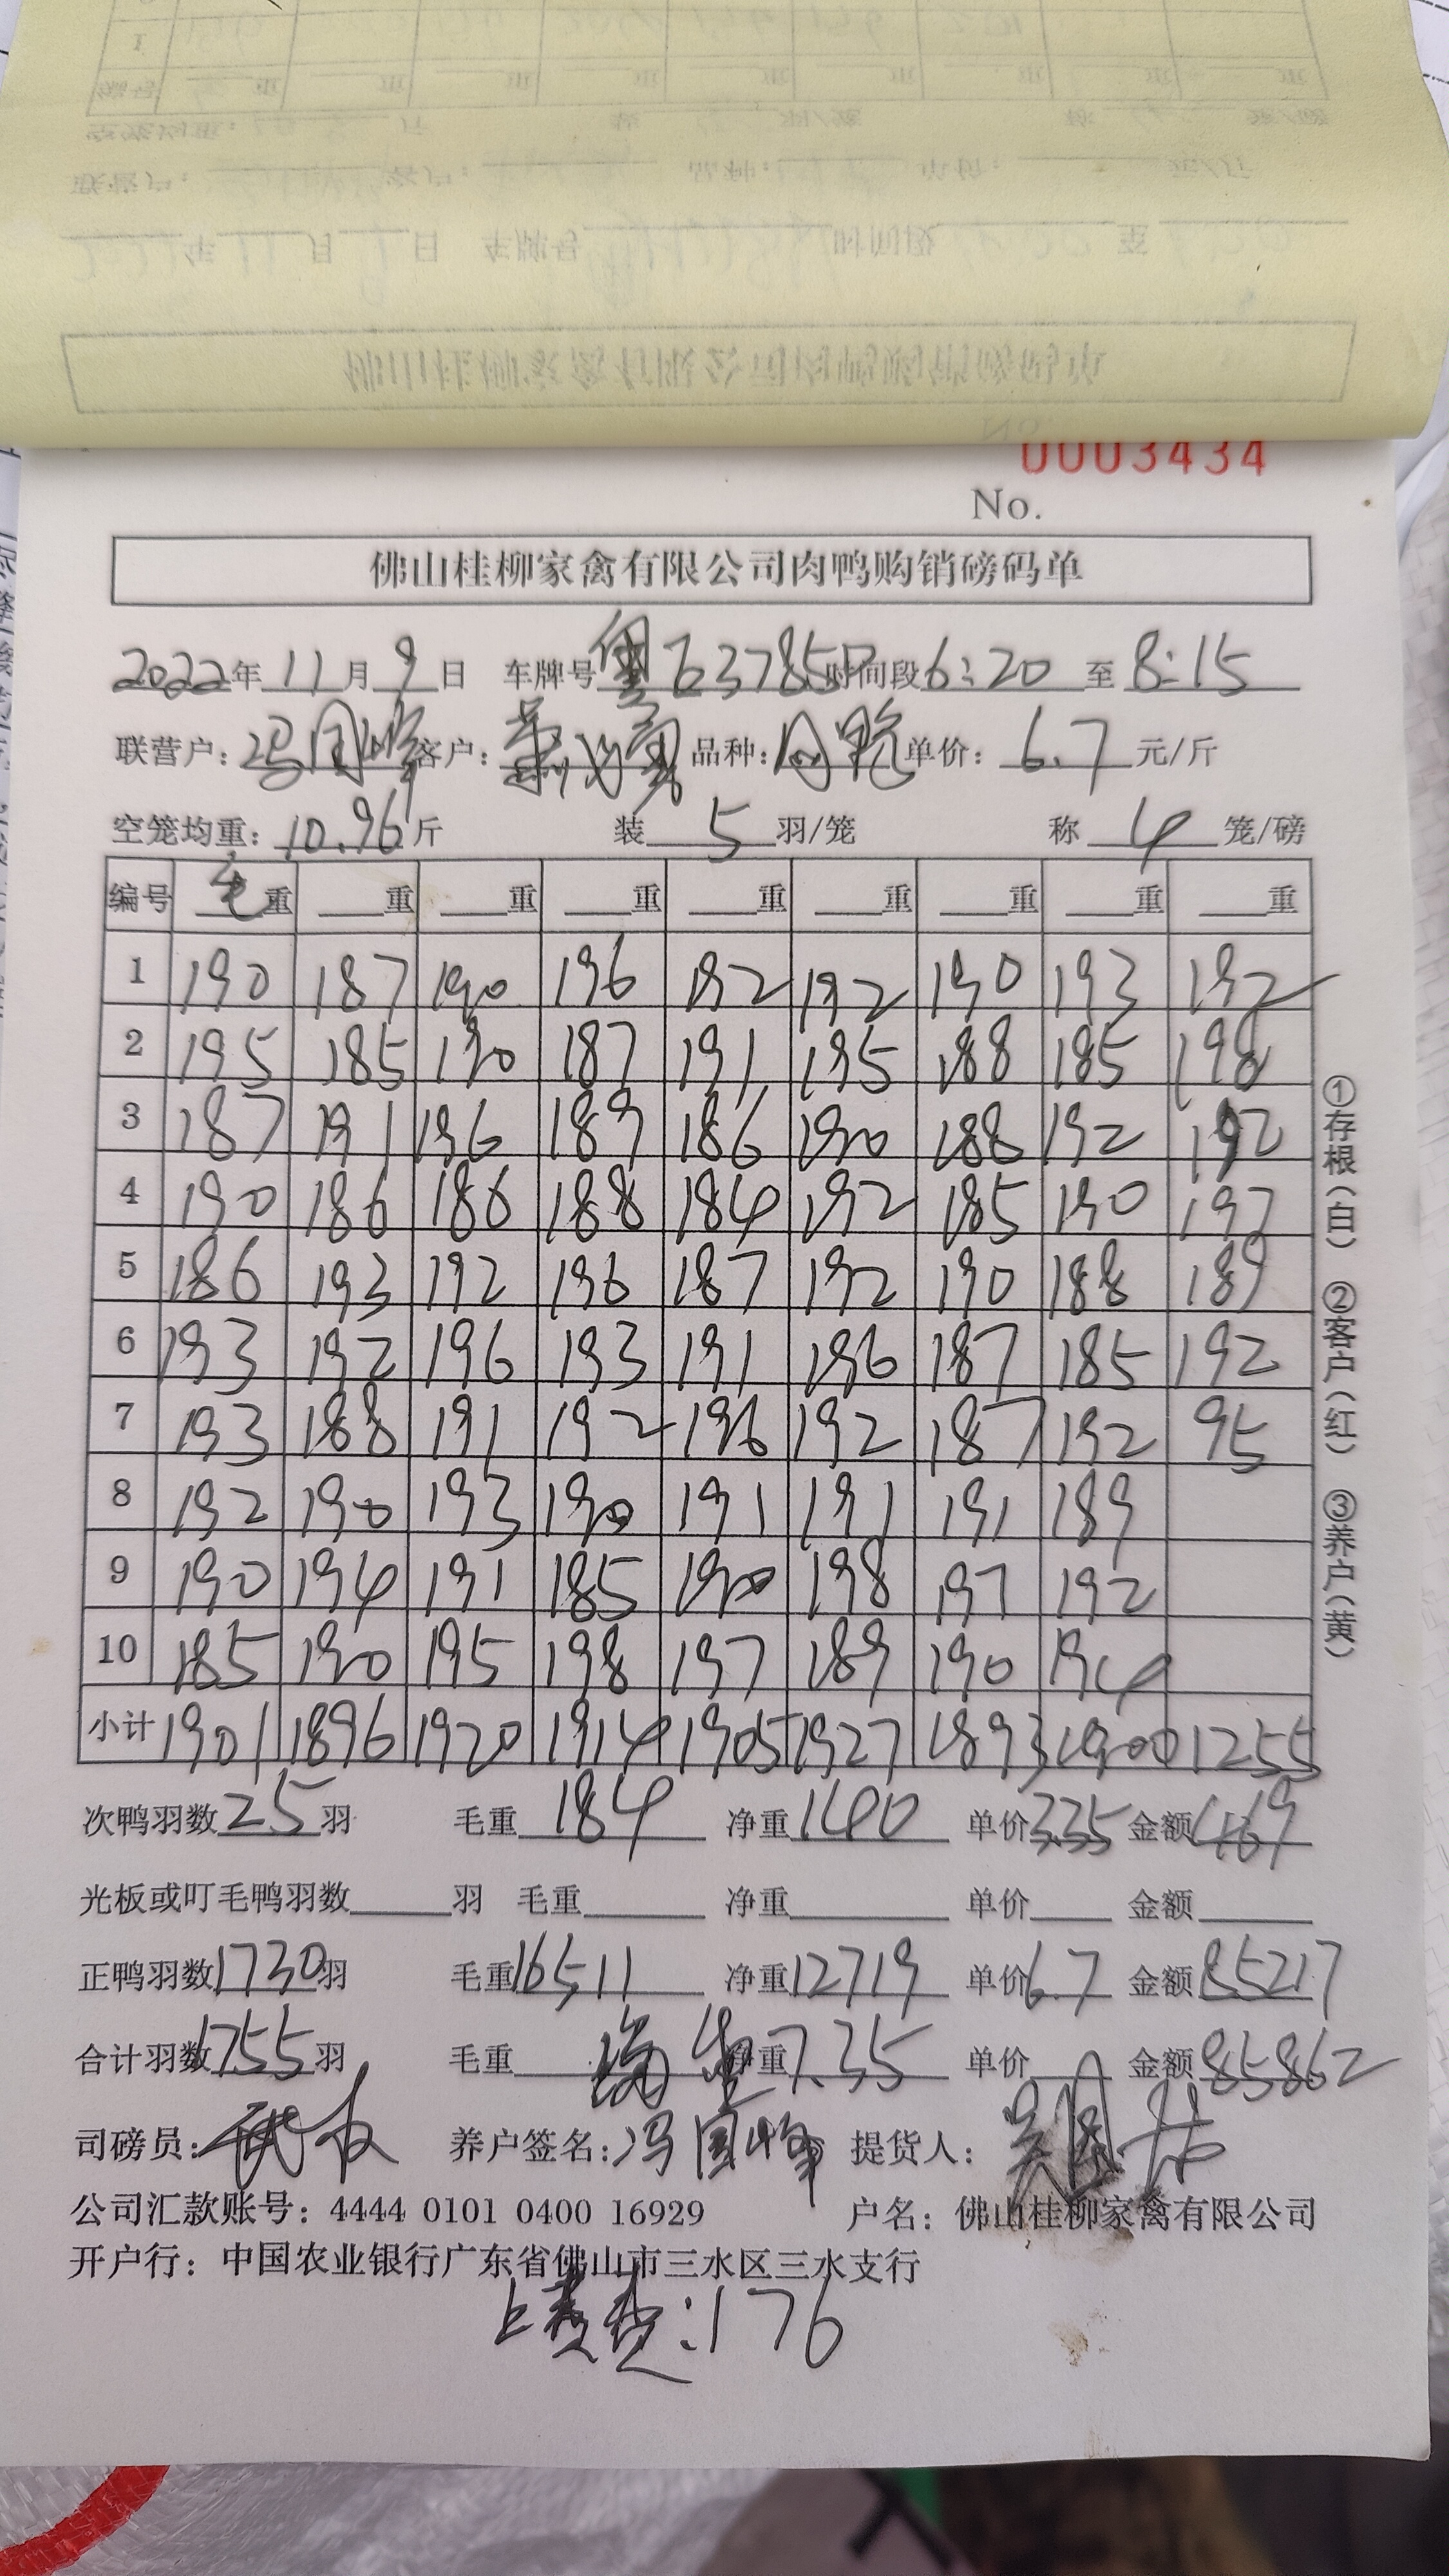 0003434
No.
佛山桂柳家禽有限公司肉鸭购销磅码单
2022年11月9日 车牌号粤 时间段6:20至8:15
联营户:冯国峰 客户: 品种: 单价:6.7元/斤
空笼均重:10.96斤 装5羽/笼 称4笼/磅
编号 毛重 重 重 重 重 重 重 重 重
1 190 187 190 196 192 192 190 193 192
2 195 185 190 187 191 195 188 185 198
3 187 191 196 189 186 190 188 192 192
4 190 186 186 188 184 192 185 190 197
5 186 193 192 196 187 192 190 188 189
6 193 192 196 193 191 196 187 185 192
7 193 188 191 192 196 192 187 192 95
8 192 190 193 190 191 191 191 189
9 190 194 191 185 190 198 197 192
10 185 190 195 198 197 189 190 194
小计 1901 1896 1920 1914 1905 1927 1893 1900 1255
次鸭羽数25羽 毛重184 净重140 单价3.35 金额469
光板或叮毛鸭羽数 羽 毛重 净重 单价 金额
正鸭羽数1730羽 毛重16511 净重12719 单价6.7 金额85217
合计羽数1755羽 毛重 净重7.35 单价 金额85862
司磅员: 养户签名:冯国峰 提货人:
公司汇款账号:4444 0101 0400 16929 户名:佛山桂柳家禽有限公司
开户行:中国农业银行广东省佛山市三水区三水支行
上 :176
①存根(白) ②客户(红) ③养户(黄)